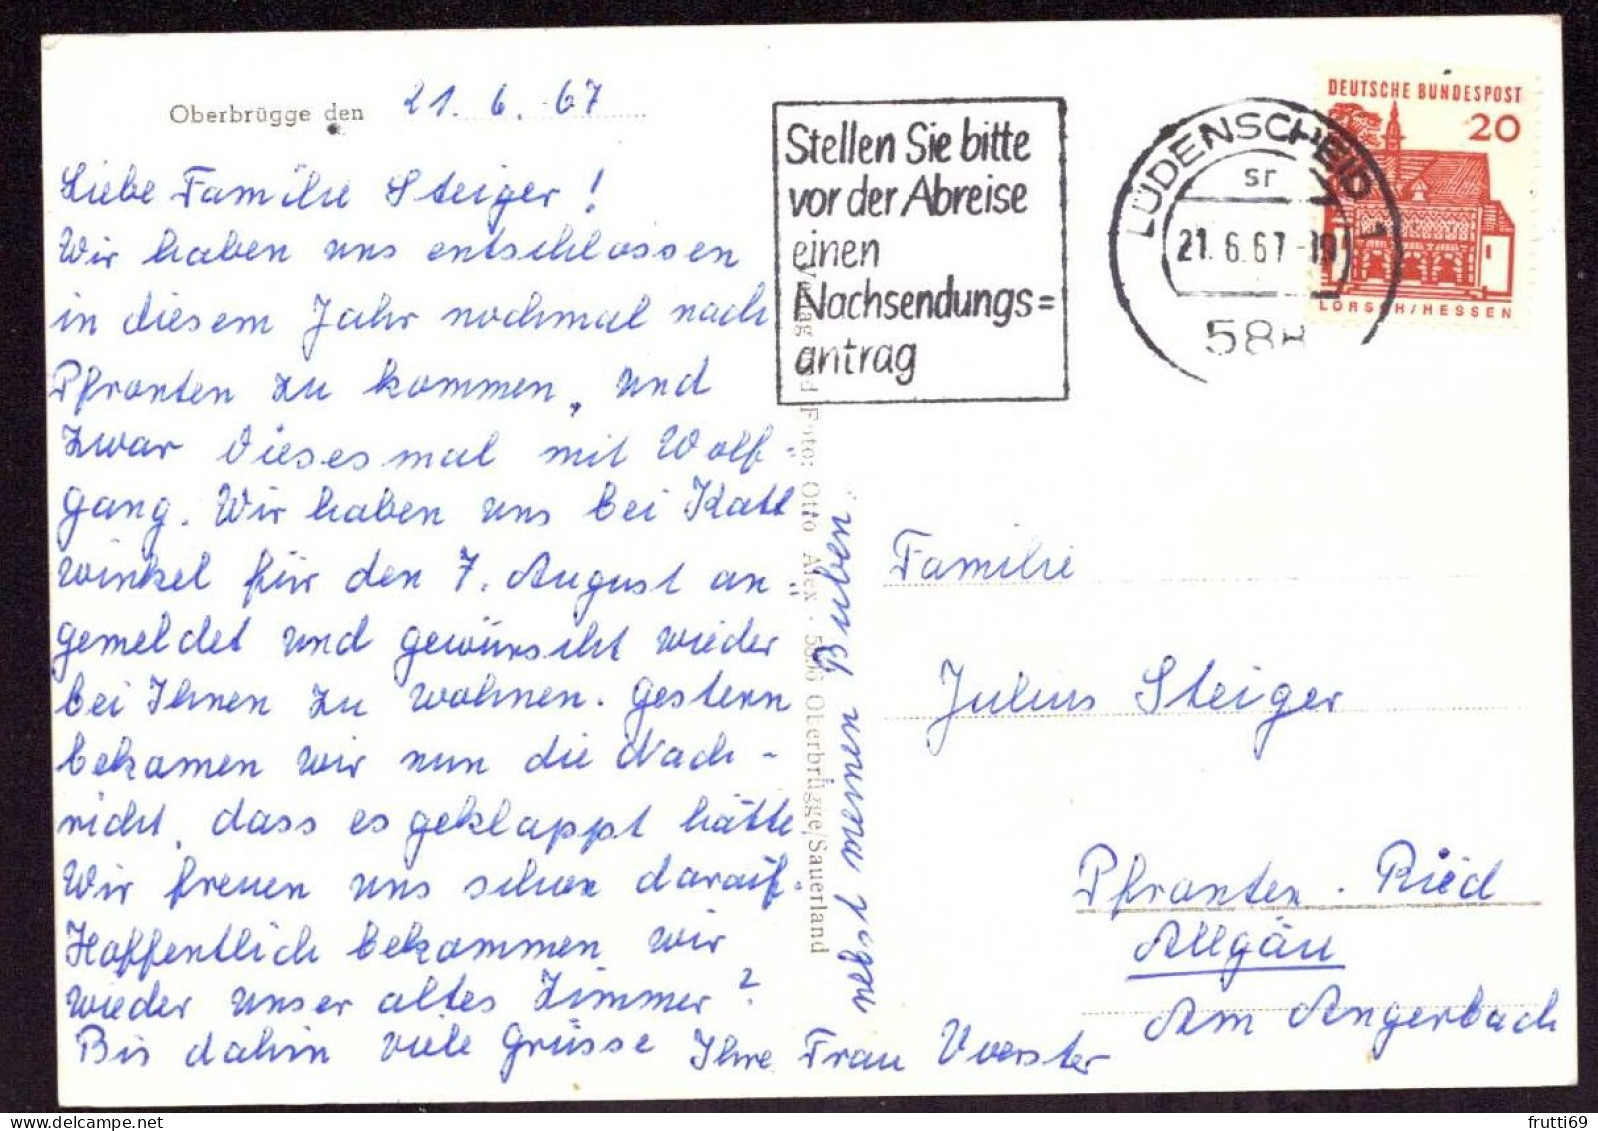 Oberbrügge den 21. 6. 67
Liebe Familie Steiger!
Wir haben uns entschlossen
in diesem Jahr nochmal nach
Pfronten zu kommen, und
zwar diesesmal mit Wolf-
gang. Wir haben uns bei Katt
winkel für den 7. August an-
gemeldet und gewünscht wieder
bei Ihnen zu wohnen. Gestern
bekamen wir nun die Nach-
richt, dass es geklappt hätte
Wir freuen uns schon darauf.
Hoffentlich bekommen wir
wieder unser altes Zimmer?
Bis dahin viele Grüsse Ihre Frau Voerster
nebst meinen Buben.
Verlag und Foto: Otto Alex · 5896 Oberbrügge/Sauerland
Stellen Sie bitte
vor der Abreise
einen
Nachsendungs=
antrag
LÜDENSCHEID 1
sr
21.6.67-19
588
DEUTSCHE BUNDESPOST
20
LORSCH/HESSEN
Familie
Julius Steiger
Pfronten. Ried
Allgäu
Am Angerbach
frutti69